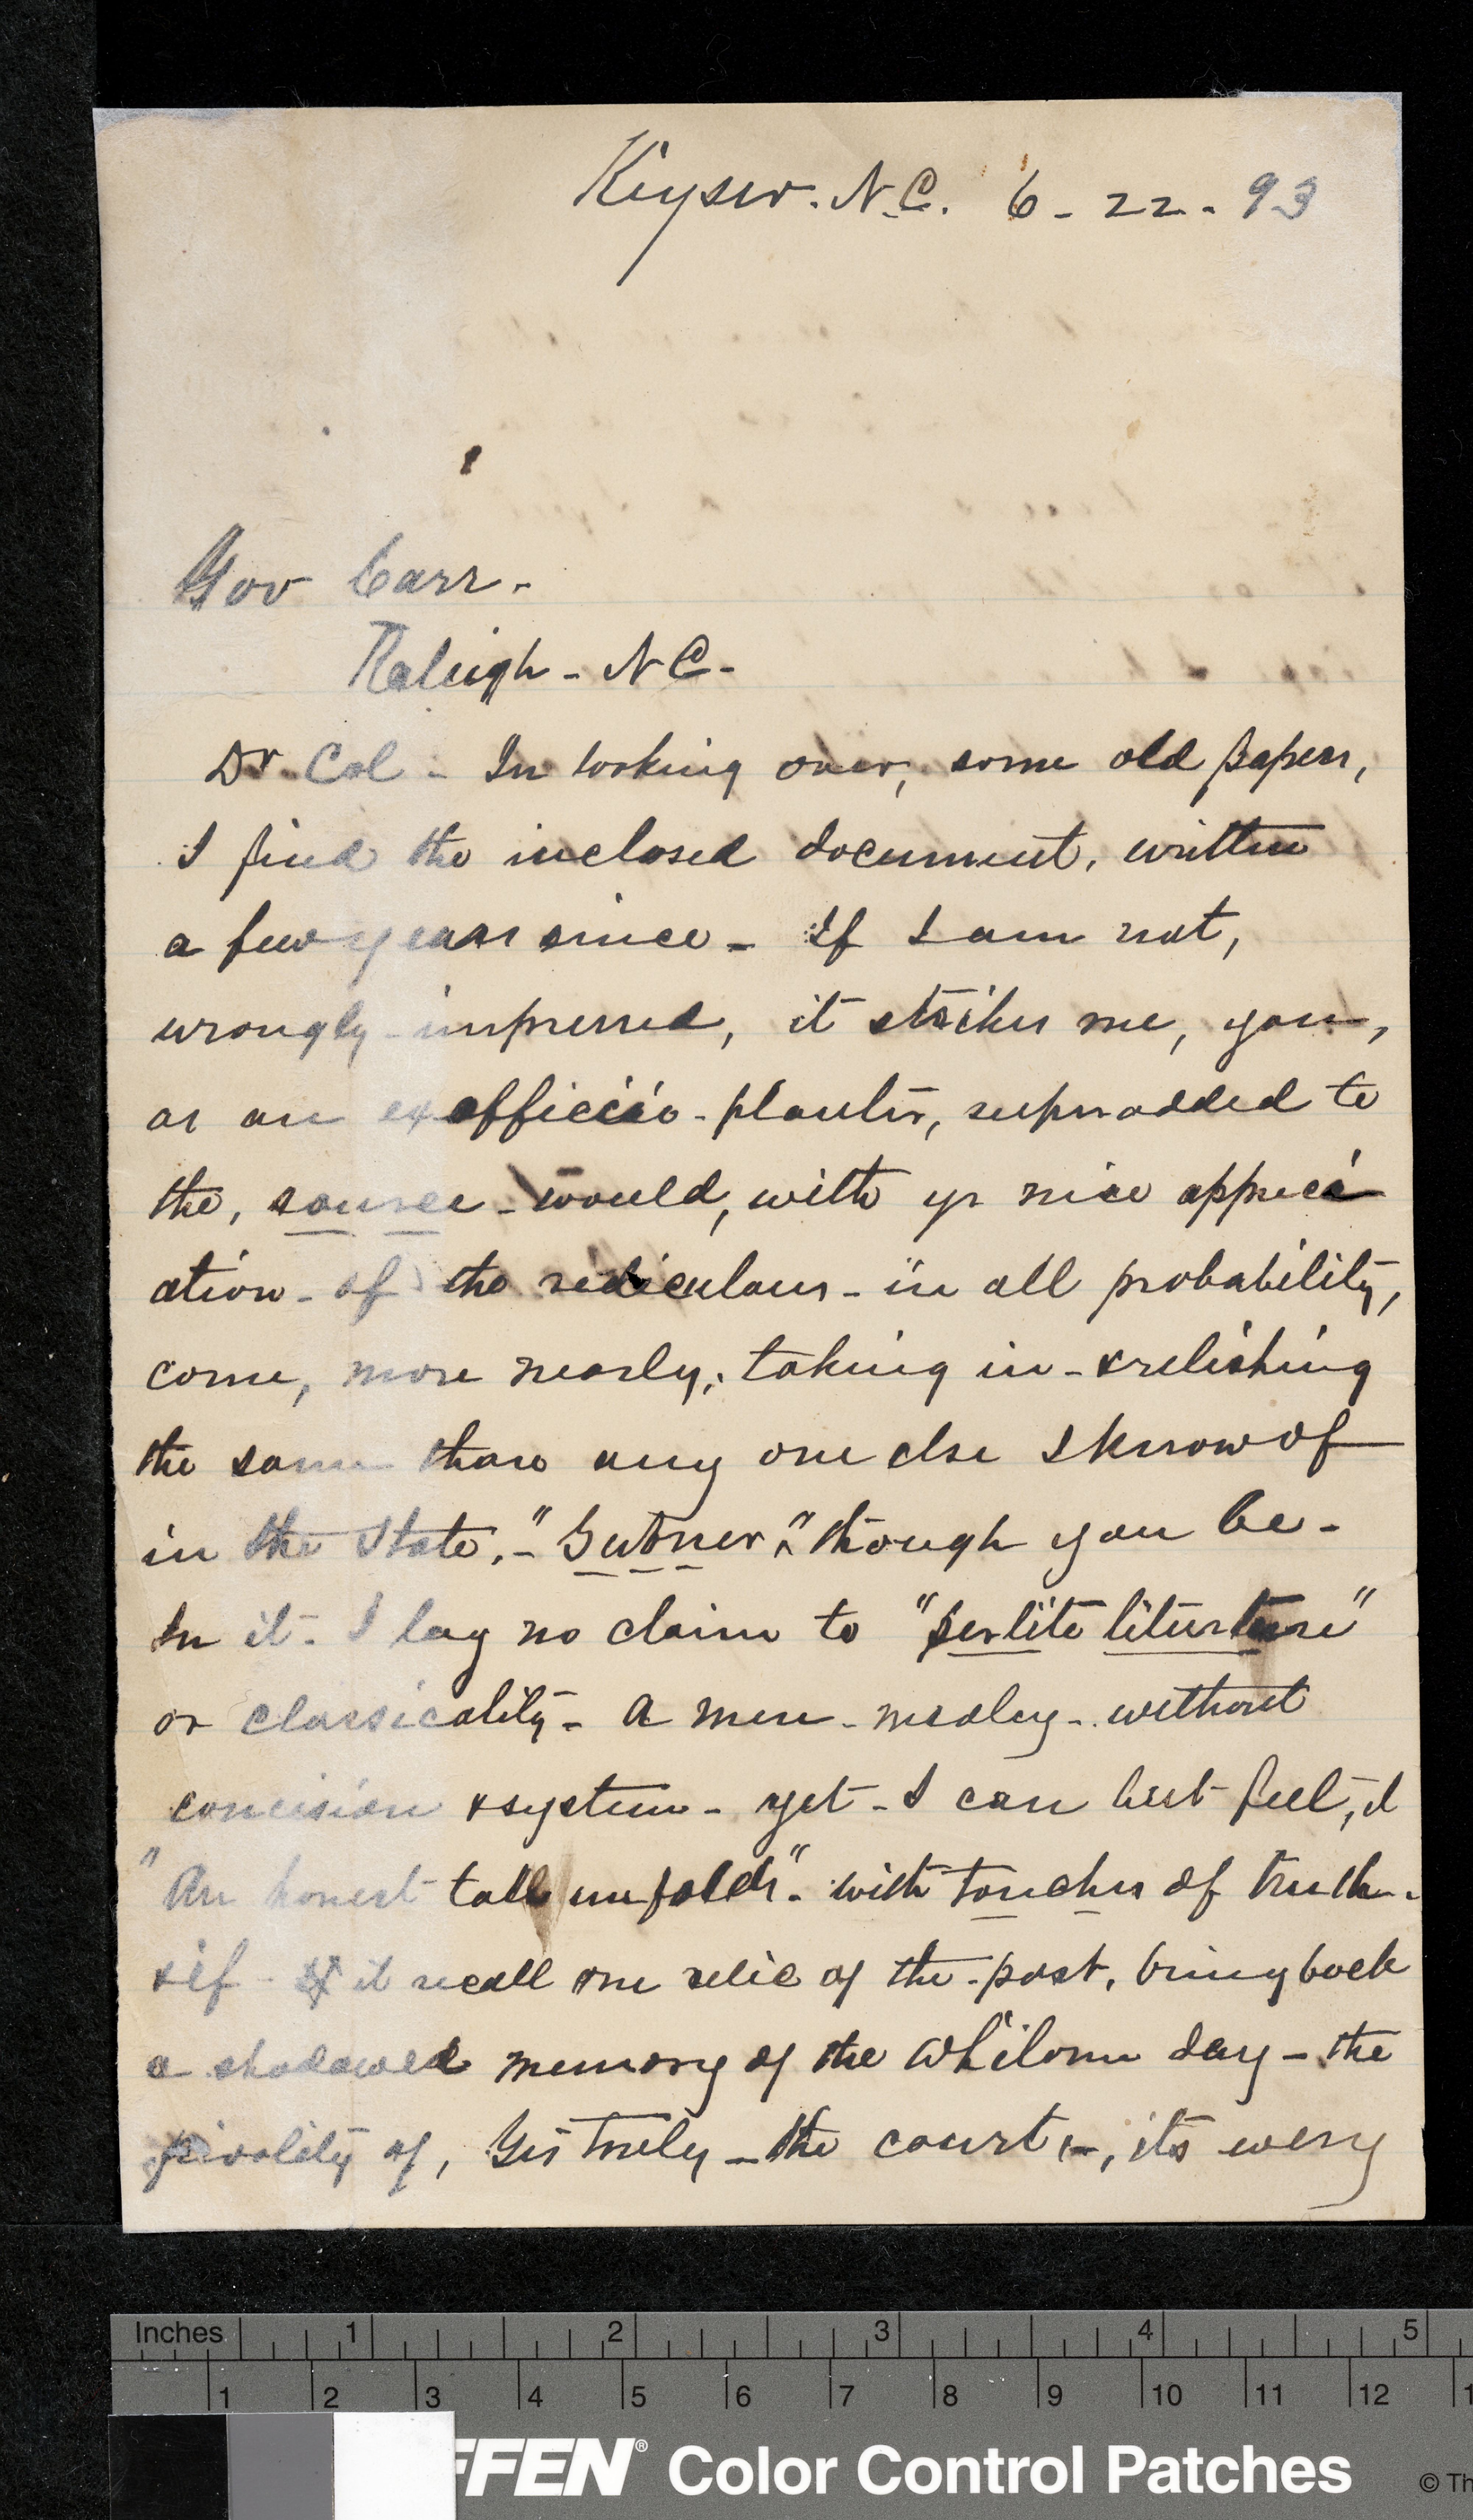 Keyser. N.C. 6-22-93
Gov Carr-
Raleigh- NC-
Dr. Col- In looking over, some old papers,
I find the inclosed document, written
a few years since- If I am not,
wrongly impressed, it strikes me, you,
as an ex officio-planter, superadded to
the, source-would, with yr nice appreci
ation- of the rediculous- in all probability,
come, more nearly, taking in- & relishing
the same than any one else I know of
in the State,-" " though you be-
In it- I lay no claim to "perlite literture"
or classicality- a mere- medley- without
concision & system- yet- I can but feel, I
"An honest tale unfolds"- with touches of truth-
& if- it recall one relic of the-past, bring back
a shadowed memory of the whilom day- the
frivolity of, Yis truly- the court-, its very
Inches 1 2 3 4 5
1 2 3 4 5 6 7 8 9 10 11 12
FFEN® Color Control Patches
© Th